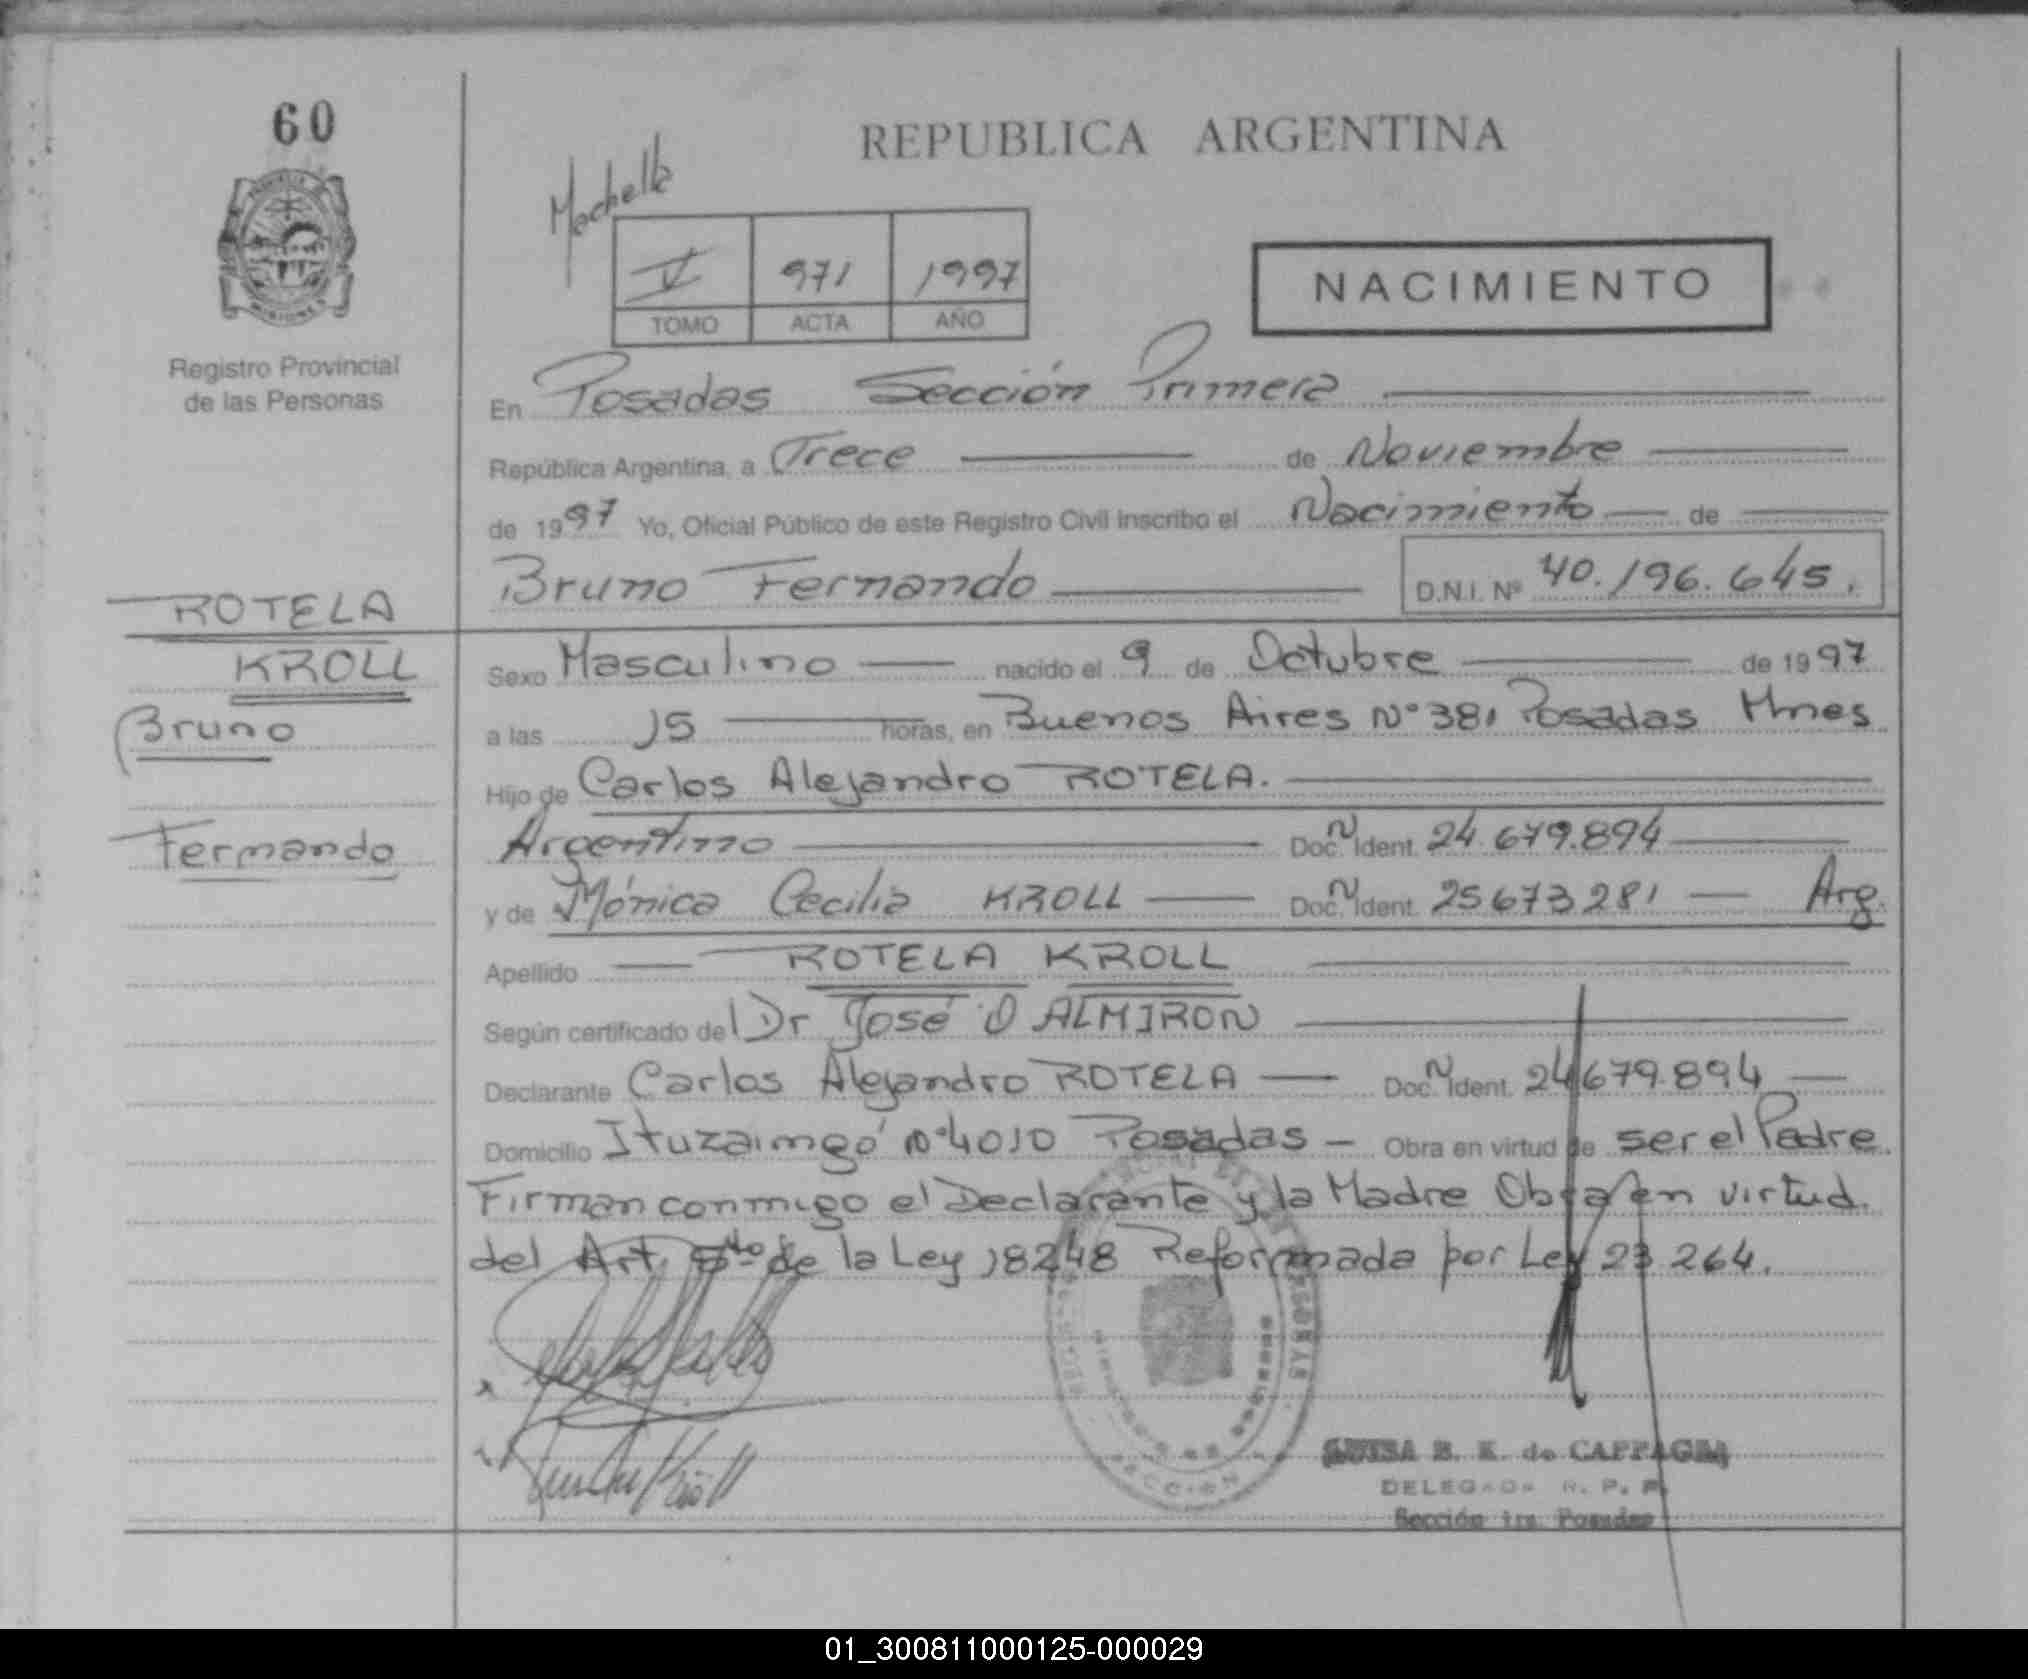 60
REPUBLICA ARGENTINA
V 971 1997
TOMO ACTA AÑO
NACIMIENTO
Registro Provincial
de las Personas
En Posadas Sección Primera
República Argentina, a Trece de Noviembre
de 1997 Yo, Oficial Público de este Registro Civil Inscribo el Nacimiento de
Bruno Fernando D.N.I. Nº 40.196.645.
ROTELA
KROLL
Bruno
Fernando
Sexo Masculino nacido el 9 de Octubre de 1997
a las 15 horas, en Buenos Aires Nº 381 Posadas Mnes
Hijo de Carlos Alejandro ROTELA.
Argentino Doc. N Ident. 24.679.894
y de Mónica Cecilia KROLL Doc. N Ident. 25673281 Arg.
Apellido ROTELA KROLL
Según certificado de Dr José O ALMIRON
Declarante Carlos Alejandro ROTELA Doc. N Ident. 24679.894
Domicilio Ituzaingó Nº 4010 Posadas Obra en virtud de ser el Padre
Firman conmigo el Declarante y la Madre Obra en virtud
del Art. 5to de la Ley 18248 Reformada por Ley 23264.
Kroll
SECCION 1
B. K. de
DELEGADA R. P. P.
Sección 1ra. Posadas
01_300811000125-000029